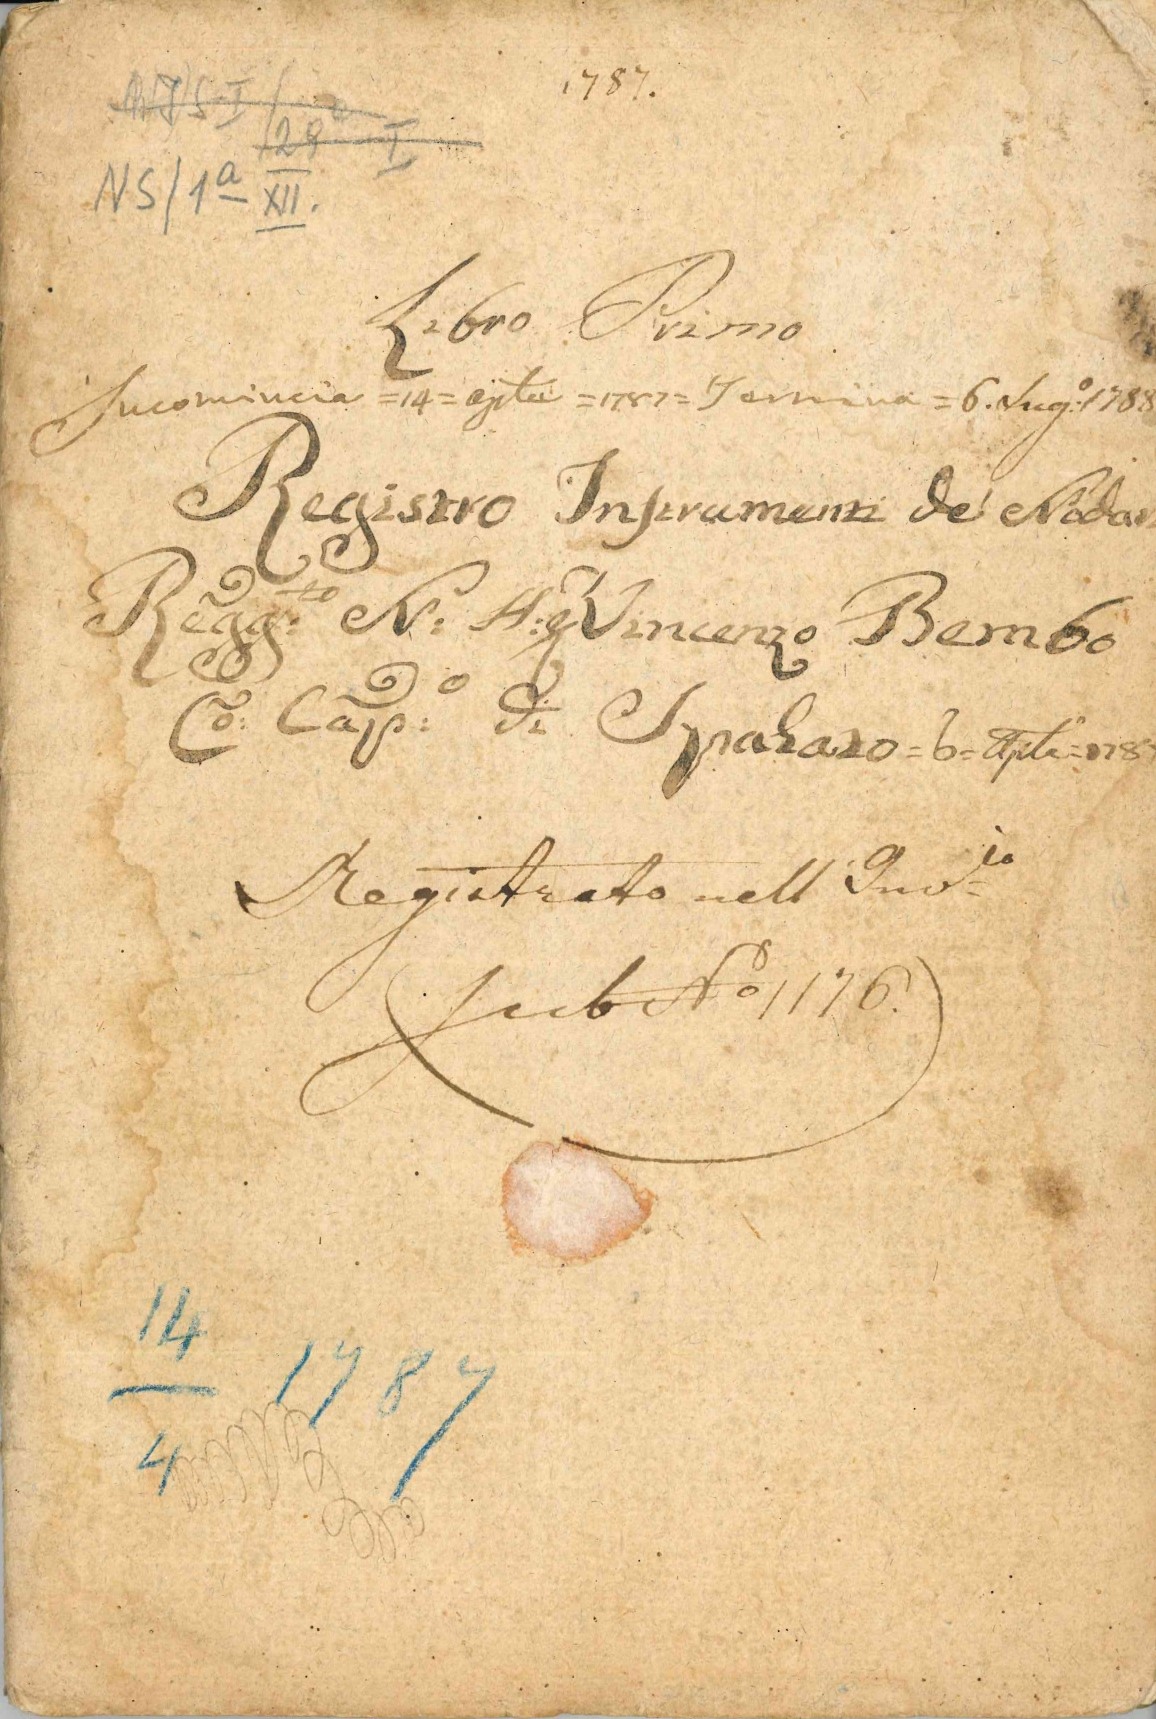 1787.
NS/1ª XII.
128 I
Libro Primo
Incomincia =14= aple =1787= Termina =6. Lug:º 1788
Registro Instrumenti de Nodar
Regg:to N: H: Vincenzo Bembo
Co: Cap:o di Spalato =6= Aple =178
Registrato nell Inv.io
(sub Nº 1176.)
14
4
1787